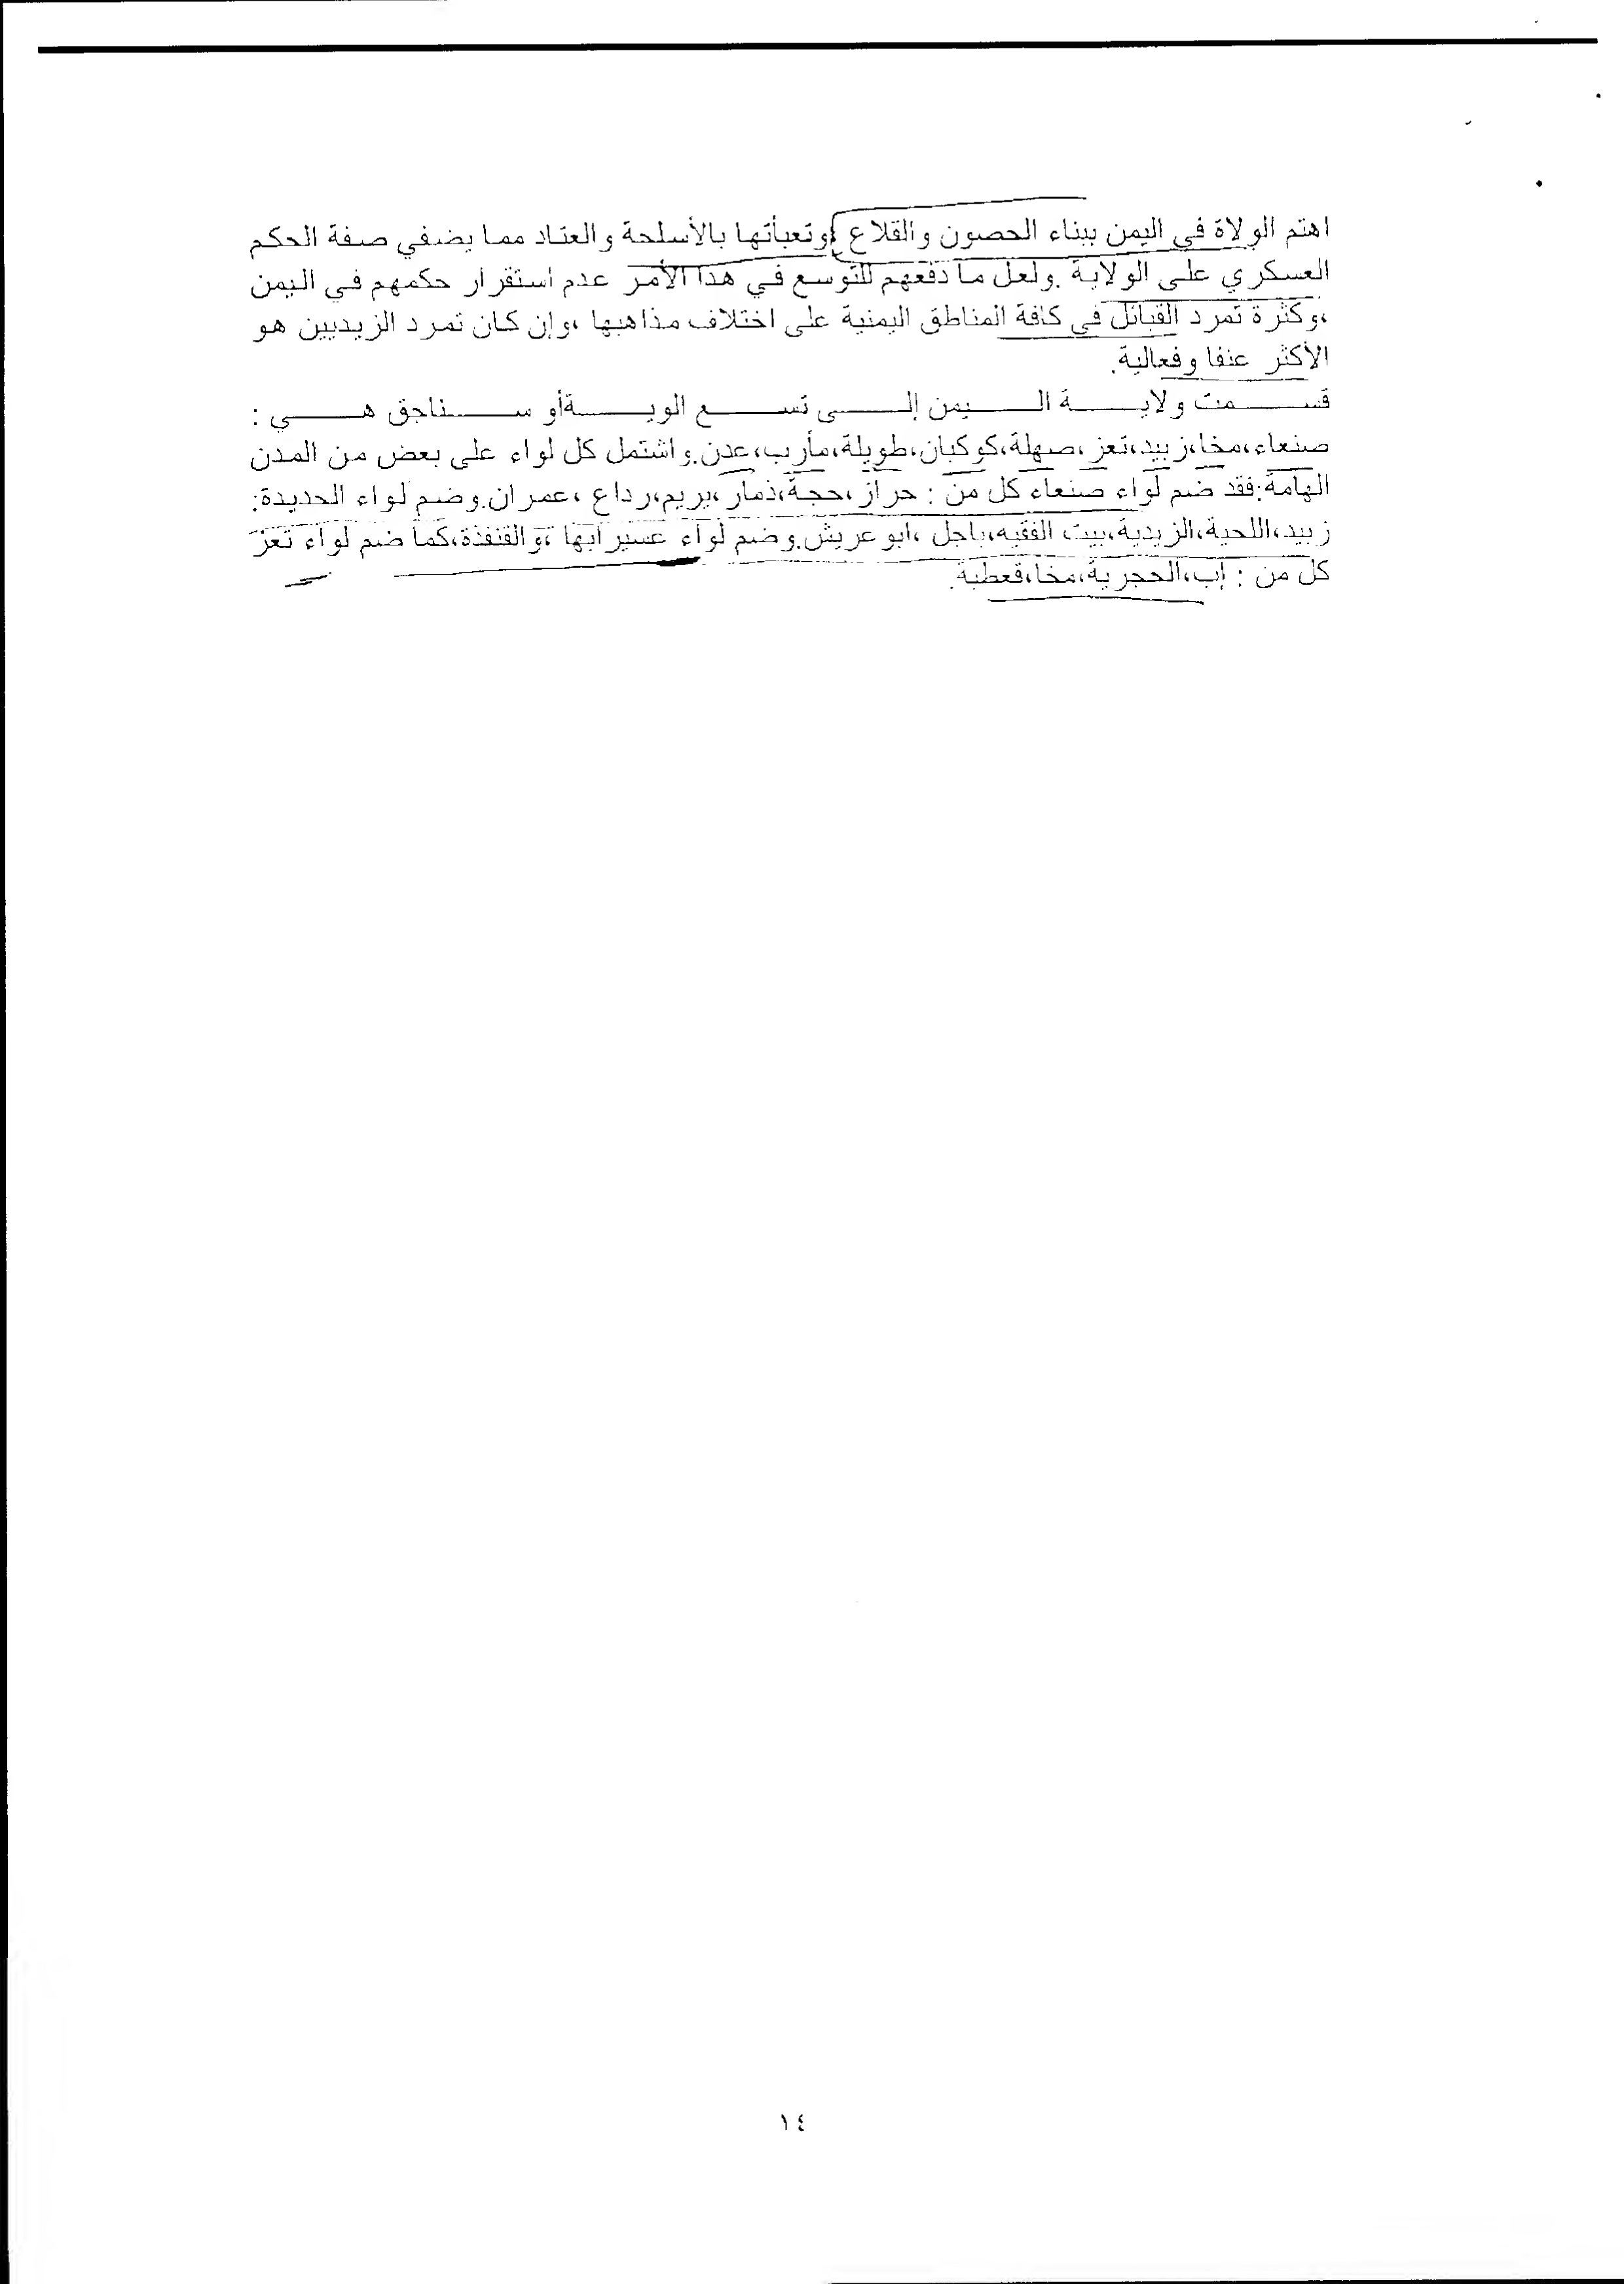 اهتم الولاة في اليمن ببناء الحصون والقلاع ،وتعبأتها بالأسلحة والعتاد مما يضفي صفة الحكم
العسكري على الولاية .ولعل ما دفعهم للتوسع في هذا الأمر عدم استقرار حكمهم في اليمن
،وكثرة تمرد القبائل في كافة المناطق اليمنية على اختلاف مذاهبها ،وإن كان تمرد الزيديين هو
الأكثر عنفا وفعالية.
قسمت ولاية اليمن إلى تسع الويةأو سناجق هي :
صنعاء،مخا،زبيد،تعز،صهلة،كوكبان،طويلة،مأرب،عدن.واشتمل كل لواء على بعض من المدن
الهامة:فقد ضم لواء صنعاء كل من : حراز،حجة،ذمار،يريم،رداع ،عمران.وضم لواء الحديدة:
زبيد،اللحية،الزيدية،بيت الفقيه،باجل ،ابو عريش.وضم لواء عسير ابها ،والقنفذة،كما ضم لواء تعز
كل من : إب،الحجرية،مخا،قعطبة.
١٤